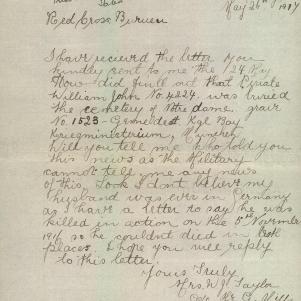 May 26th 1917
Red Cross Bureau
I have received the letter you
kindly sent to me the 24 May
How did find out that Private
William John No 4824, was buried
the cemetery of Notre dame grave
No. 1523 - Kgl Bay
Kriegministerium, Munchen
Will you tell me who told you
this news as the Military
cannot tell me any news
of this, I dont believe my
husband was ever in Germany
as I have a letter to say he was
killed in action on the 5th November
1916 so he couldnt died in both
places, I hope you will reply
to this letter.
Yours Truly
Mrs. W. J. Taylor